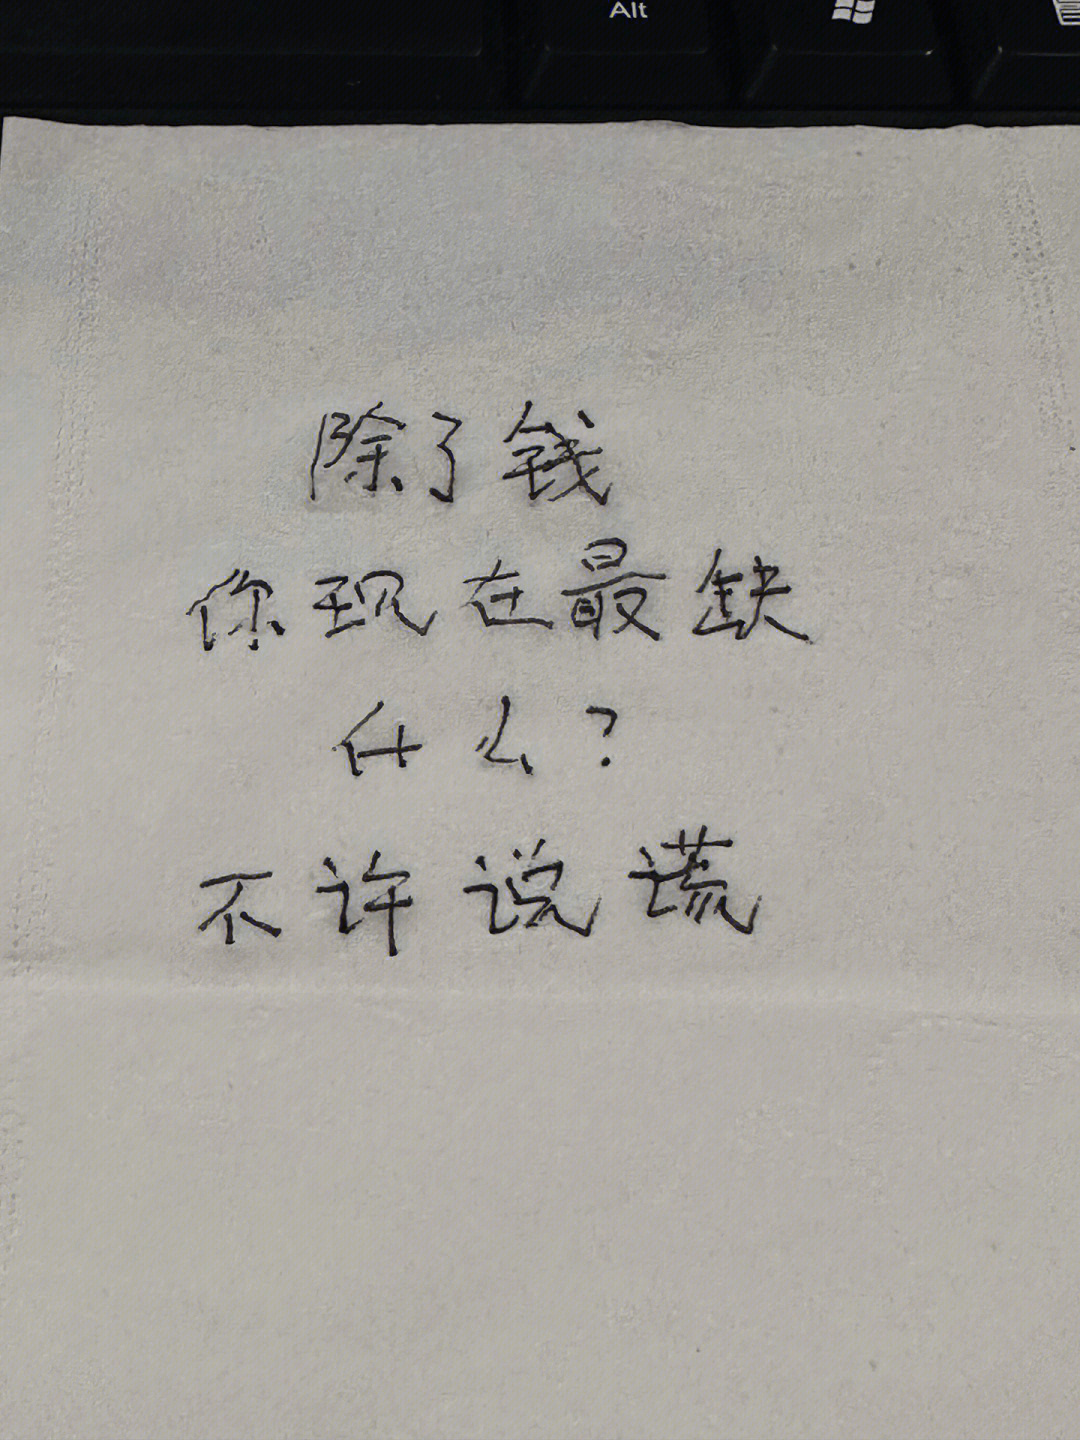 Alt
除了钱
你现在最缺
什么?
不许说谎